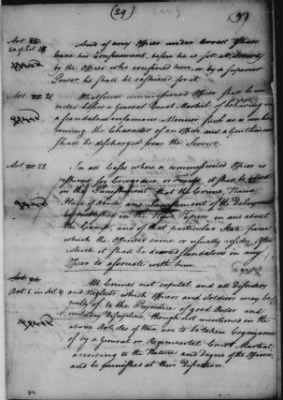 (29)
And if any Officer under Arrest shall
leave his Confinement, before he is set at Liberty
by the Officer who confined him, or by a Superior
Power, he shall be cashiered for it.
Art 21
Whatsoever commissioned Officer shall be con-
victed before a General Court Martial, of behaving in
a scandalous infamous Manner such as is unbe-
coming the Character of an Officer and a Gentleman
shall be discharged from the Service
Art 22
In all Cases where a commissioned Officer is
cashiered for Cowardice or Fraud, it shall be added
in the Punishment that the Crime, Name,
Place of Abode and Punishment of the Delinquent
be published in the News Papers in and about
the Camp, and of that particular State from
which the Offender came or usually resides, after
which it shall be deemed scandalous in any
Officer to associate with him
All Crimes not capital and all Disorders
and Neglects, which Officers and Soldiers may be
guilty of to the Prejudice of good Order and
military Discipline, though not mentioned in the
above Articles of War, are to be taken Cognizance
of by a General or Regimental Court Martial,
according to the Nature and degree of the Offence,
and be punished at their Discretion.